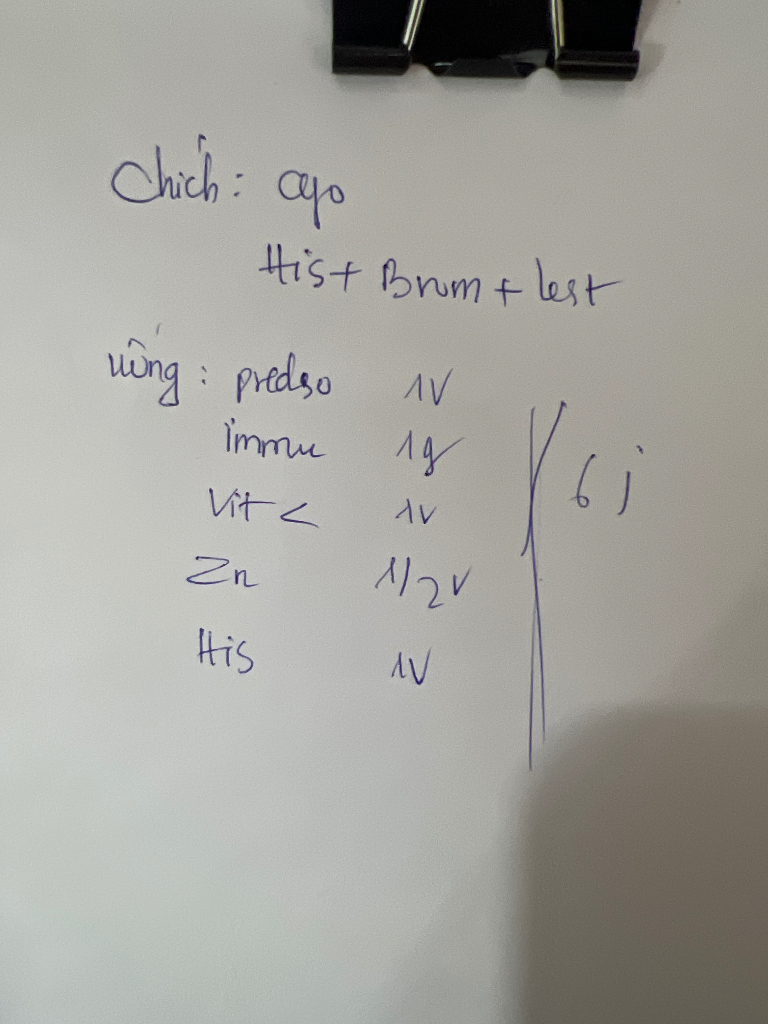 Chích: cyo
His + Brom + lest
uống: predso 1V
immu 1g
Vit C 1V
Zn 1/2V
His 1V
6 j